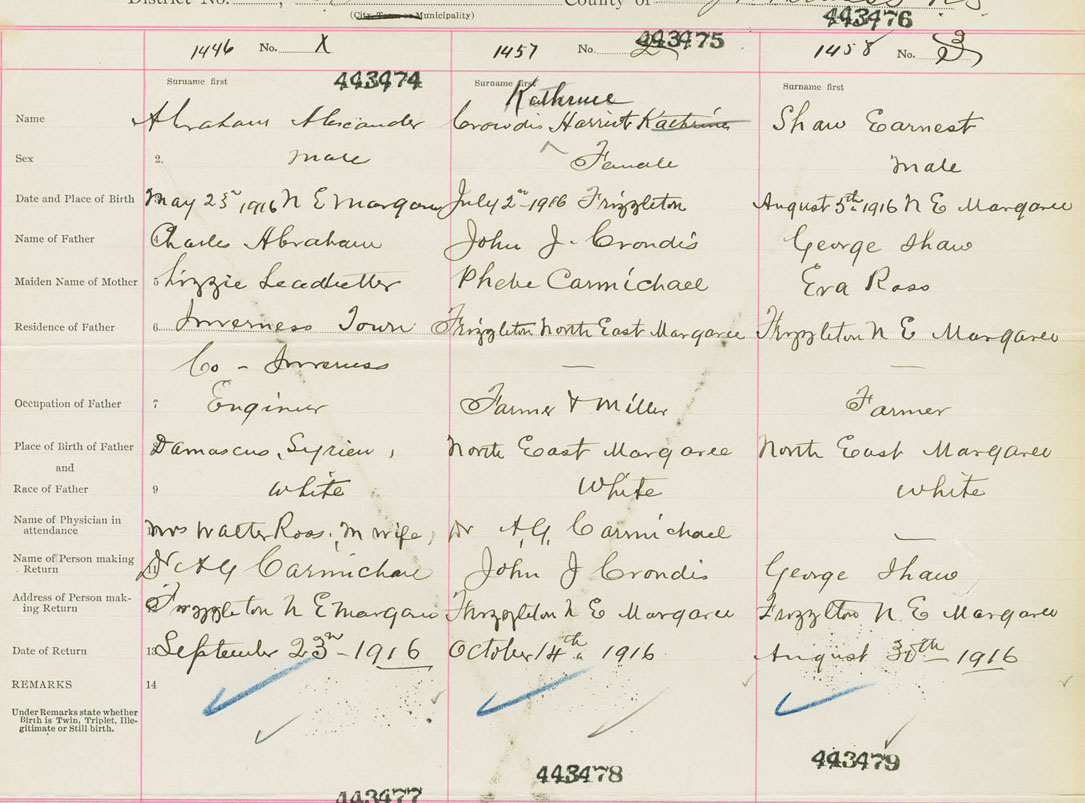 District No. County of
(City Town or Municipality)
443476
1446 No. X
1457 No. 2
443475
1458 No. 3
Surname first 443474
Surname first
Surname first
Kathrine
Name Abraham Alexander
Crowdis Harriet Kathrine
Shaw Earnest
Sex 2. male
Female
male
Date and Place of Birth May 23rd 1916 N E Margaree
July 2nd 1916 Frizzleton
August 5th 1916 N E Margaree
Name of Father Charles Abraham
John J. Crowdis
George Shaw
Maiden Name of Mother 5 Lizzie Leadbetter
Phebe Carmichael
Eva Ross
Residence of Father 6 Inverness Town
Frizzleton North East Margaree
Frizzleton N E Margaree
Co - Inverness
—
—
Occupation of Father 7 Engineer
Farmer & Miller
Farmer
Place of Birth of Father Damascus, Syrien,
North East Margaree
North East Margaree
and
Race of Father 9 White
White
White
Name of Physician in
attendance Mrs Walter Ross, M wife,
Dr A.G. Carmichael
—
Name of Person making
Return 11 Dr A G Carmichael
John J Crowdis
George Shaw
Address of Person mak-
ing Return Frizzleton N E Margaree
Frizzleton N E Margaree
Frizzleton N E Margaree
Date of Return 13 September 23rd - 1916
October 14th 1916
August 30th - 1916
REMARKS 14
Under Remarks state whether
Birth is Twin, Triplet, Ille-
gitimate or Still-birth.
443477
443478
443479